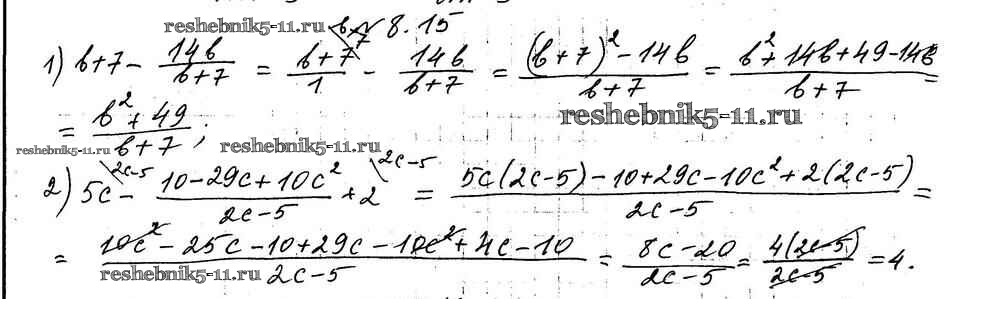 reshebnik5-11.ru № 8.15
1) b+7 - 14b/(b+7) = (b+7)/1 - 14b/(b+7) = ((b+7)² - 14b)/(b+7) = (b² + 14b + 49 - 14b)/(b+7) =
reshebnik5-11.ru
= (b² + 49)/(b+7);
reshebnik5-11.ru reshebnik5-11.ru
2) 5c - (10 - 29c + 10c²)/(2c-5) + 2 = (5c(2c-5) - 10 + 29c - 10c² + 2(2c-5))/(2c-5) =
= (10c² - 25c - 10 + 29c - 10c² + 4c - 10)/(2c-5) = (8c - 20)/(2c-5) = 4(2c-5)/(2c-5) = 4.
reshebnik5-11.ru